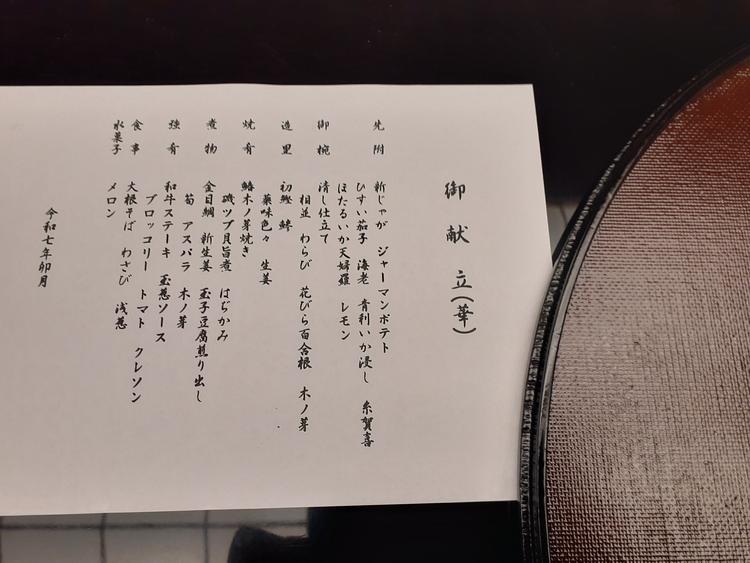 御献立(華)
先附 新じゃが ジャーマンポテト
ひすい茄子 海老 青利いか浸し 糸賀喜
ほたるいか天婦羅 レモン
御椀 清し仕立て
相並 わらび 花びら百合根 木ノ芽
造里 初鰹 鯵
薬味色々 生姜
焼肴 鰆木ノ芽焼き
磯ツブ貝旨煮 はぢかみ
煮物 金目鯛 新生姜 玉子豆腐煎り出し
筍 アスパラ 木ノ芽
強肴 和牛ステーキ 玉葱ソース
ブロッコリー トマト クレソン
食事 大根そば わさび 浅葱
水菓子 メロン
令和七年卯月